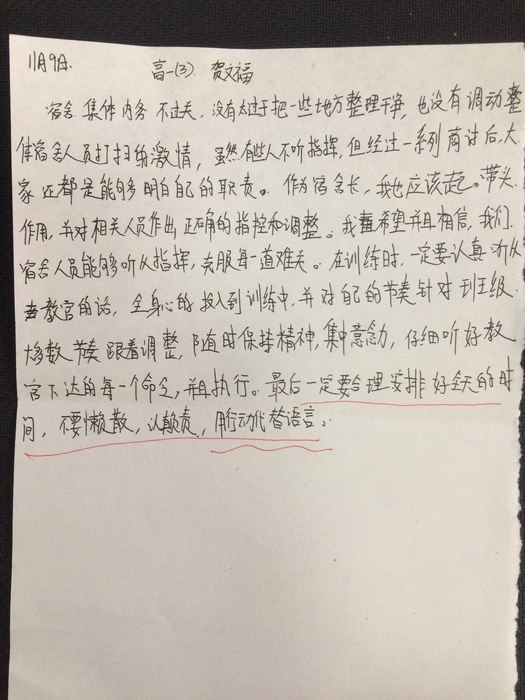 11月9日. 高一(3) 贺文福
宿舍集体内务不过关，没有太过于把一些地方整理干净，也没有调动整
体宿舍人员打扫的激情，虽然有些人不听指挥，但经过一系列商讨后，大
家还都是能够明白自己的职责。作为宿舍长，我也应该起。带头
作用，并对相关人员作出正确的指控和调整。我希望并且相信，我们.
宿舍人员能够听从指挥，克服每一道难关。在训练时，一定要认真听从
教官的话，全身心的投入到训练中，并对自己的节奏针对班级.
大多数节奏跟着调整，随时保持精神，集中意念力，仔细听好教
官下达的每一个命令，并且执行。最后一定要合理安排好全天的时
间，不要懒散，认真负责，用行动代替语言。